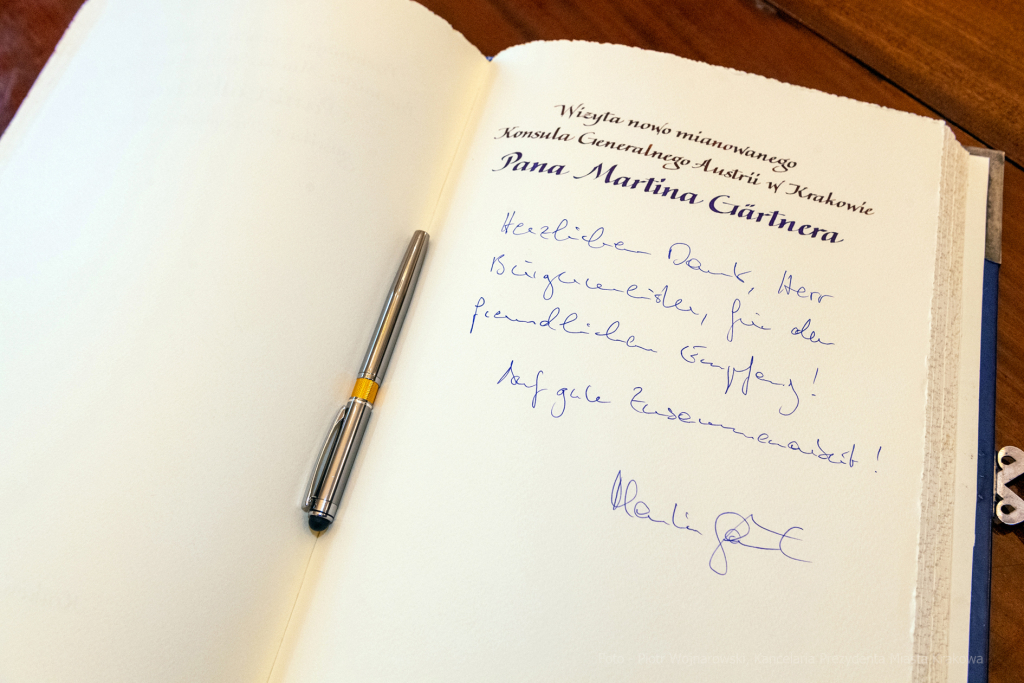 Wizyta nowo mianowanego
Konsula Generalnego Austrii w Krakowie
Pana Martina Gärtnera
Herzlichen Dank, Herr
Bürgermeister, für den
freundlichen Empfang!
Auf gute Zusammenarbeit!
Martin Gärt
Foto - Piotr Wojnarowski, Kancelaria Prezydenta Miasta Krakowa